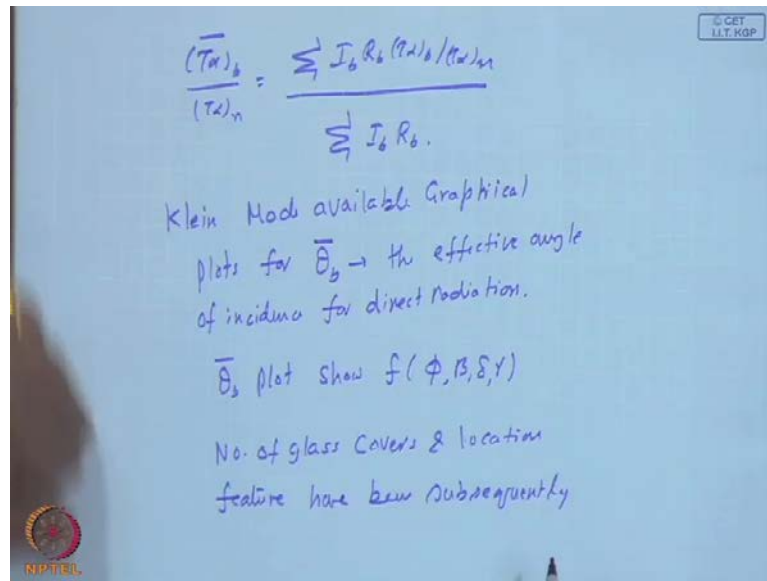 © CET
I.I.T. KGP
(τα)̅_b / (τα)_n = Σ I_b R_b (τα)_b/(τα)_n / Σ I_b R_b.
Klein Mode available Graphical
plots for θ̅_b → the effective angle
of incidence for direct radiation.
θ̅_b plot show f(Φ, β, δ, γ)
No. of glass Covers & location
feature have been subsequently
NPTEL